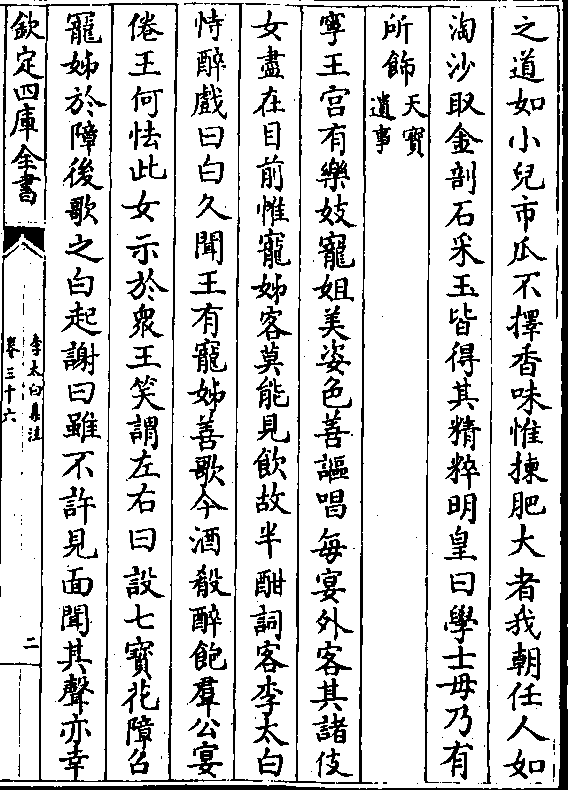 之道如小兒市瓜不擇香味惟揀肥大者我朝任人如
淘沙取金剖石采玉皆得其精粹明皇曰學士毋乃有
所飾天寶遺事
寧王宫有樂妓寵姐美姿色善謳唱每宴外客其諸伎
女盡在目前惟寵姊客莫能見飲故半酣詞客李太白
恃醉戲曰白久聞王有寵姊善歌今酒殽醉飽羣公宴
倦王何怯此女示於衆王笑謂左右曰設七寶花障召
寵姊於障後歌之白起謝曰雖不許見面聞其聲亦幸
欽定四庫全書
李太白集注
卷三十六
二